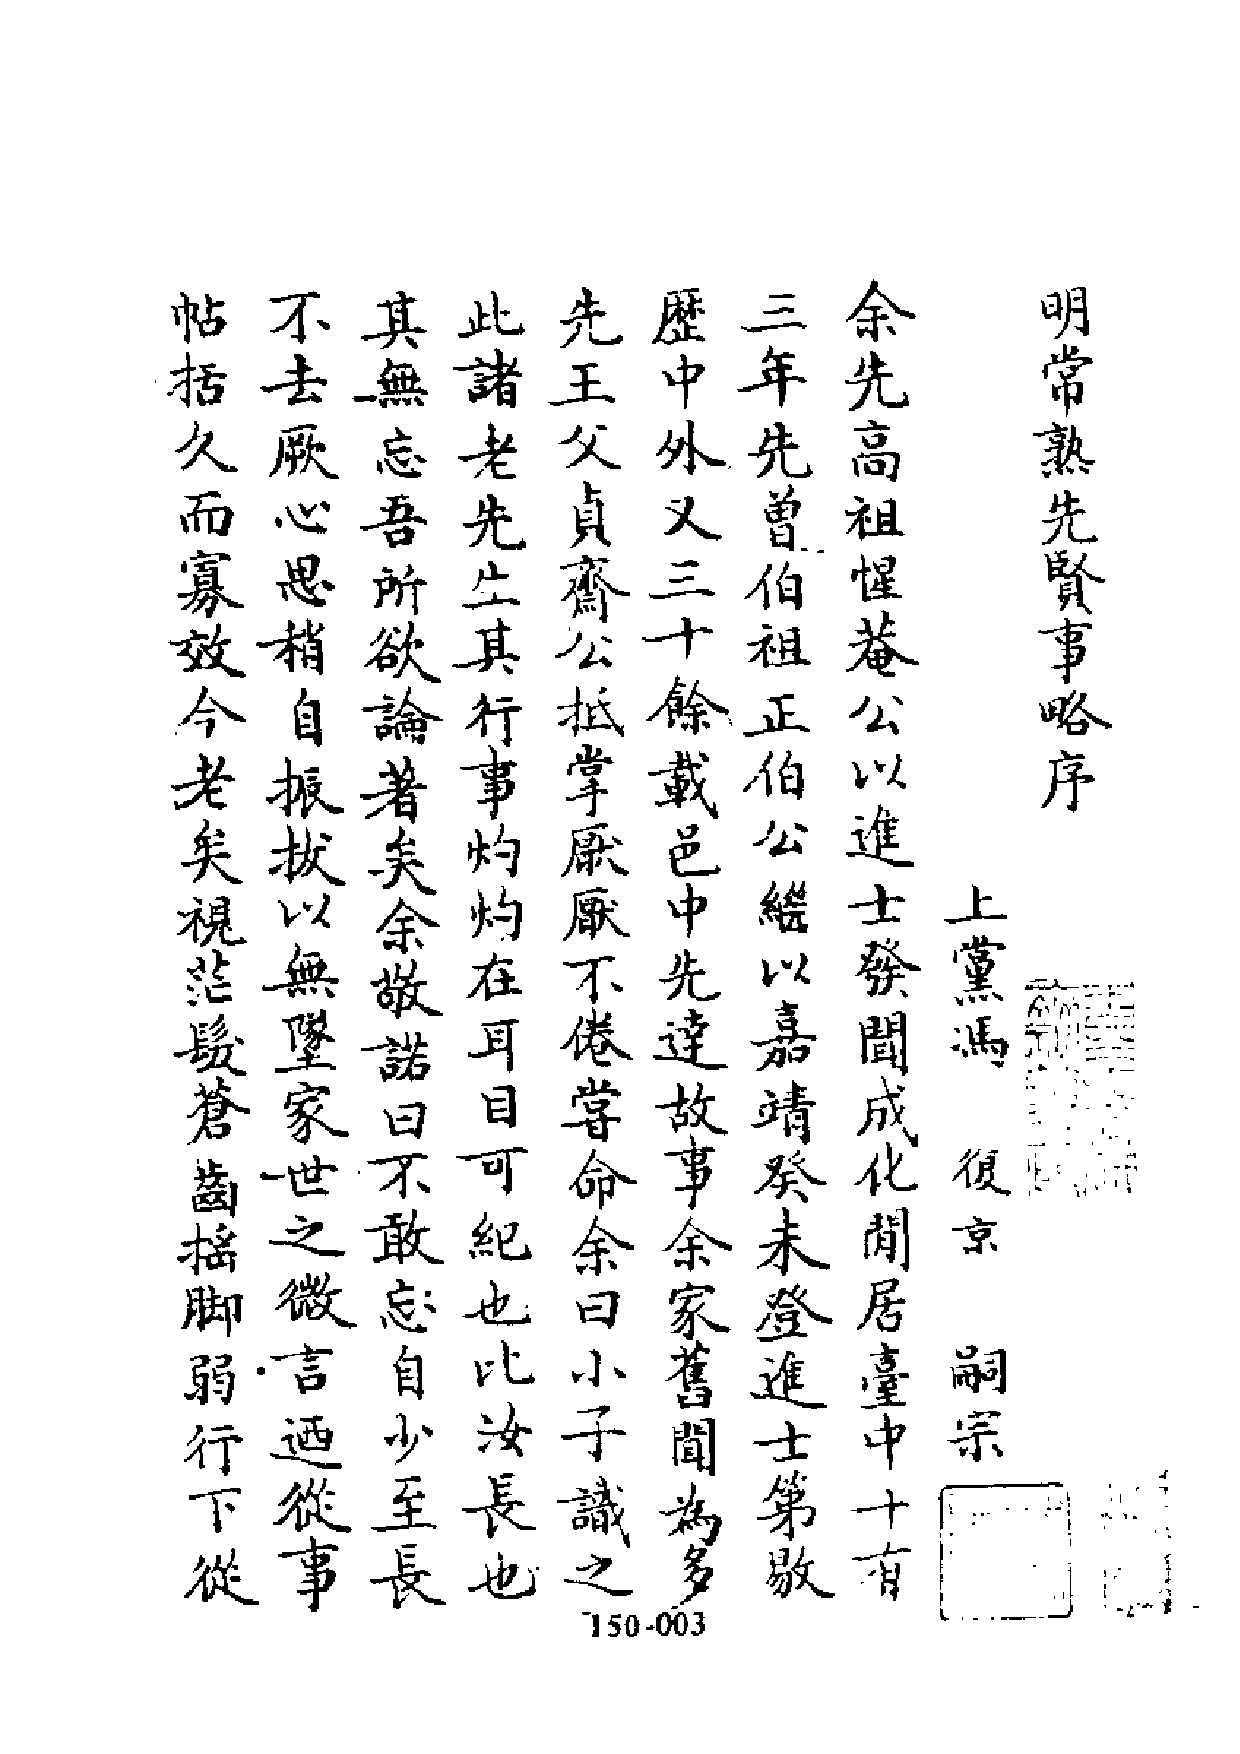 明常熟先賢事略序
上黨馮 復京 嗣宗
余先高祖惺菴公以進士發聞成化閒居臺中十有
三年先曾伯祖正伯公繼以嘉靖癸未登進士第敭
歷中外又三十餘載邑中先達故事余家舊聞為多
先王父貞齋公抵掌厭厭不倦嘗命余曰小子識之
此諸老先生其行事灼灼在耳目可紀也比汝長也
其無忘吾所欲論著矣余敬諾曰不敢忘自少至長
不去厥心思稍自振拔以無墜家世之微言迺從事
帖括久而寡效今老矣視茫髮蒼齒搖脚弱行下從
150-003